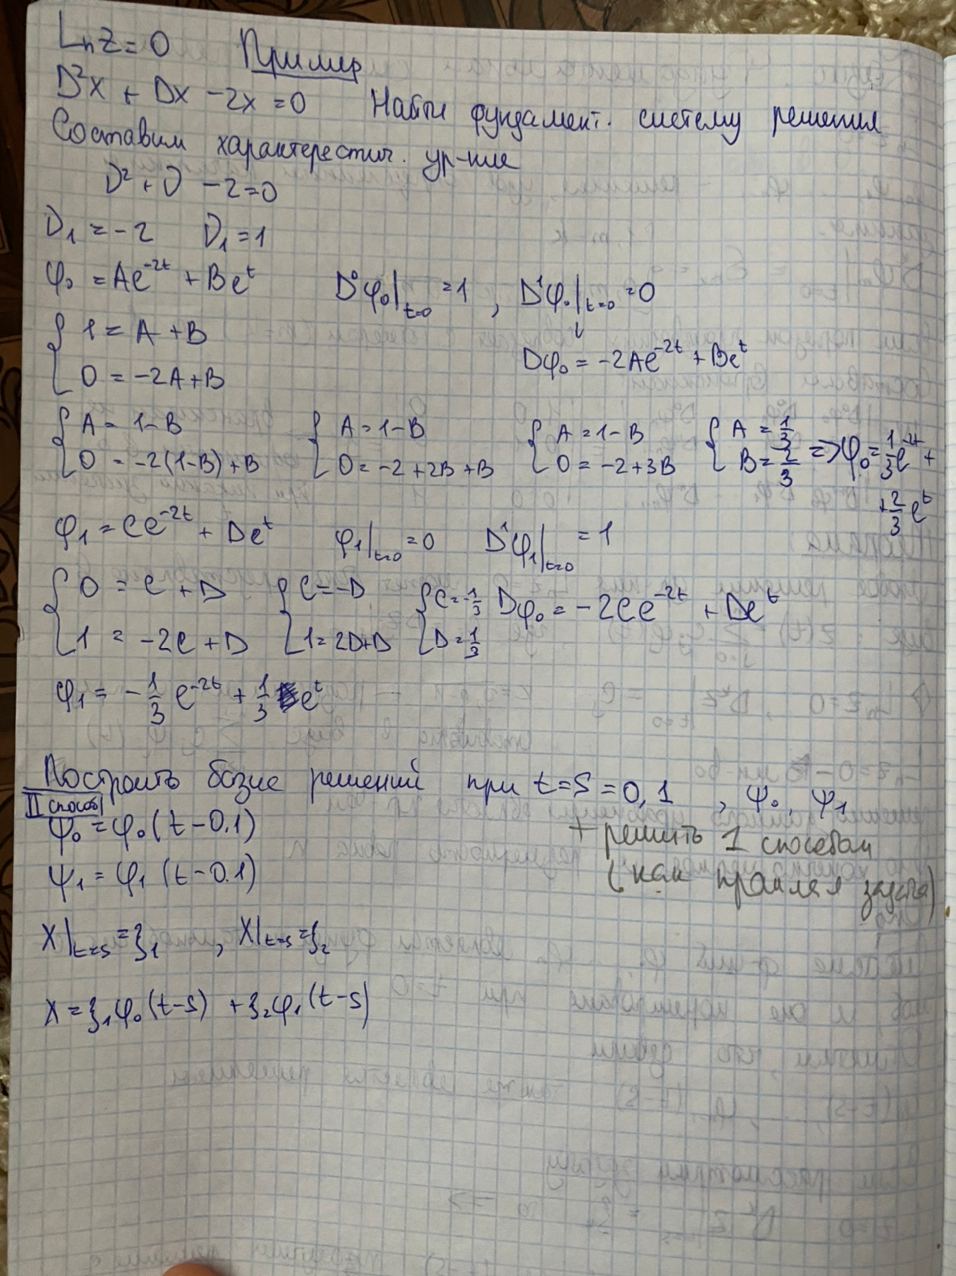 LnZ = 0 Пример
D²x + Dx - 2x = 0 Найти фундамент. систему решения
Составим характерестич. ур-ние
D² + D - 2 = 0
D₁ = -2 D₁ = 1
φ₀ = Ae^{-2t} + Be^t D⁰φ₀|_{t=0} = 1 , D¹φ₀|_{t=0} = 0
{ 1 = A + B
{ 0 = -2A + B Dφ₀ = -2Ae^{-2t} + Be^t
{ A = 1-B { A = 1-B { A = 1-B { A = 1/3
{ 0 = -2(1-B) + B { 0 = -2 + 2B + B { 0 = -2 + 3B { B = 2/3 => φ₀ = 1/3 e^{-2t} +
+ 2/3 e^t
φ₁ = Ce^{-2t} + De^t φ₁|_{t=0} = 0 D¹φ₁|_{t=0} = 1
{ 0 = C + D { C = -D { C = -1/3 Dφ₀ = -2Ce^{-2t} + De^t
{ 1 = -2C + D { 1 = 2D + D { D = 1/3
φ₁ = -1/3 e^{-2t} + 1/3 e^t
Построить базис решений при t = S = 0,1 , φ₀, φ₁
II способ
φ₀ = φ₀(t - 0.1) + решить 1 способом
φ₁ = φ₁(t - 0.1) (как прямая задача)
X|_{t=s} = ξ₁ , X|_{t=s} = ξ₂
X = ξ₁φ₀(t-s) + ξ₂φ₁(t-s)